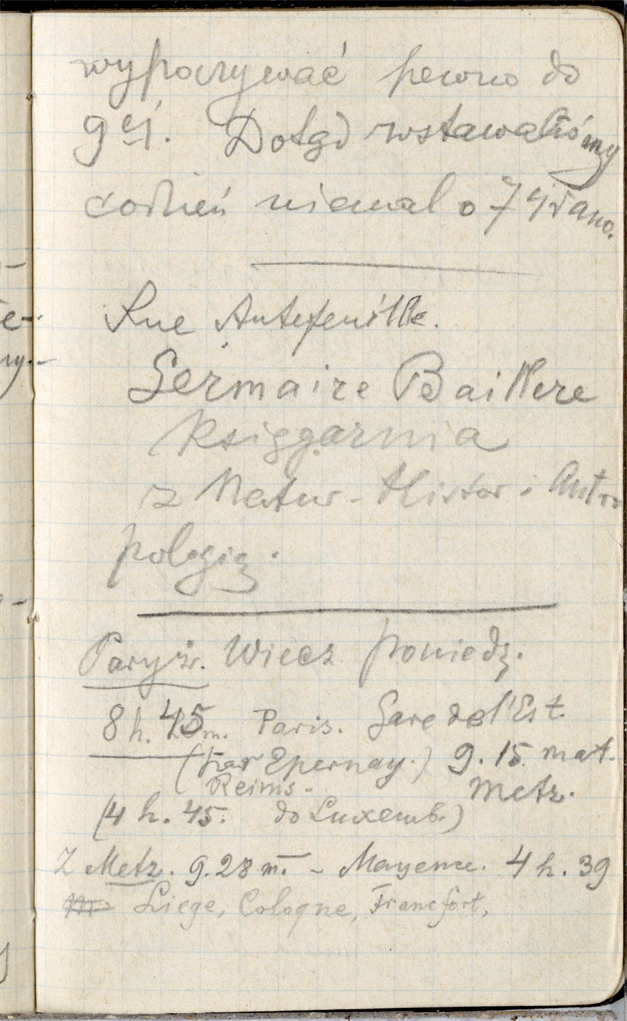 wypoczywać pewno do
9ej. Dotąd wstawaliśmy
codzień niemal o 7 4j rano.
Rue Autefeuille.
Germaire Baillere
Księgarnia
z Natur-Histor i Antro
pologią.
Paryż. Wiecz poniedz.
8 h. 45 m. Paris. Gare de l'Est.
(par Epernay.) 9. 15 mat.
Reims - Metz.
(4 h. 45. do Luxemb.)
Z Metz. 9. 28 m. - Mayence. 4 h. 39
Liege, Cologne, Francfort,